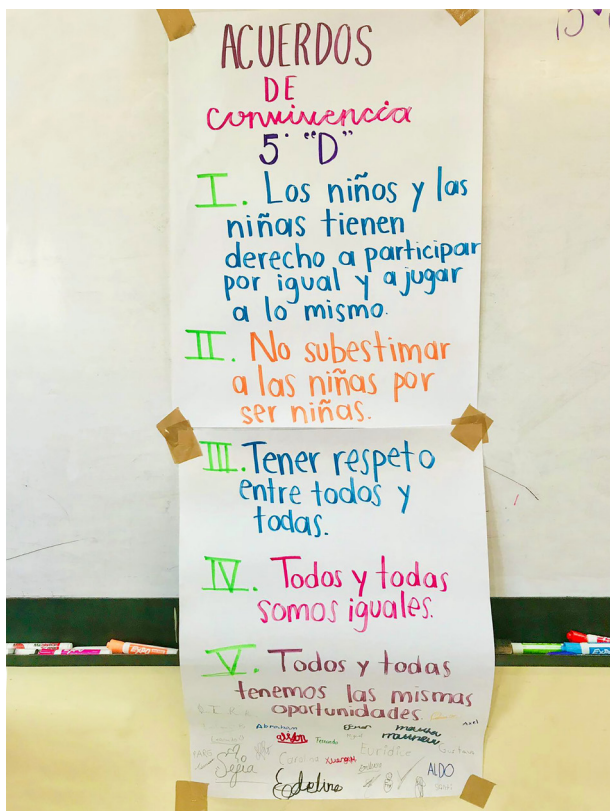 ACUERDOS
DE
convivencia
5° "D"
I. Los niños y las
niñas tienen
derecho a participar
por igual y a jugar
a lo mismo.
II. No subestimar
a las niñas por
ser niñas.
III. Tener respeto
entre todos y
todas.
IV. Todos y todas
somos iguales.
V. Todos y todas
tenemos las mismas
oportunidades.
Abraham
Axel
Fernando
Eurídice
Gustavo
Sofia
Carolina
ALDO
Edeline
EXPO